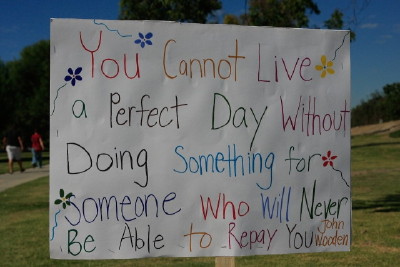 You Cannot Live
a Perfect Day Without
Doing Something for
Someone Who Will Never
Be Able to Repay You
John
Wooden